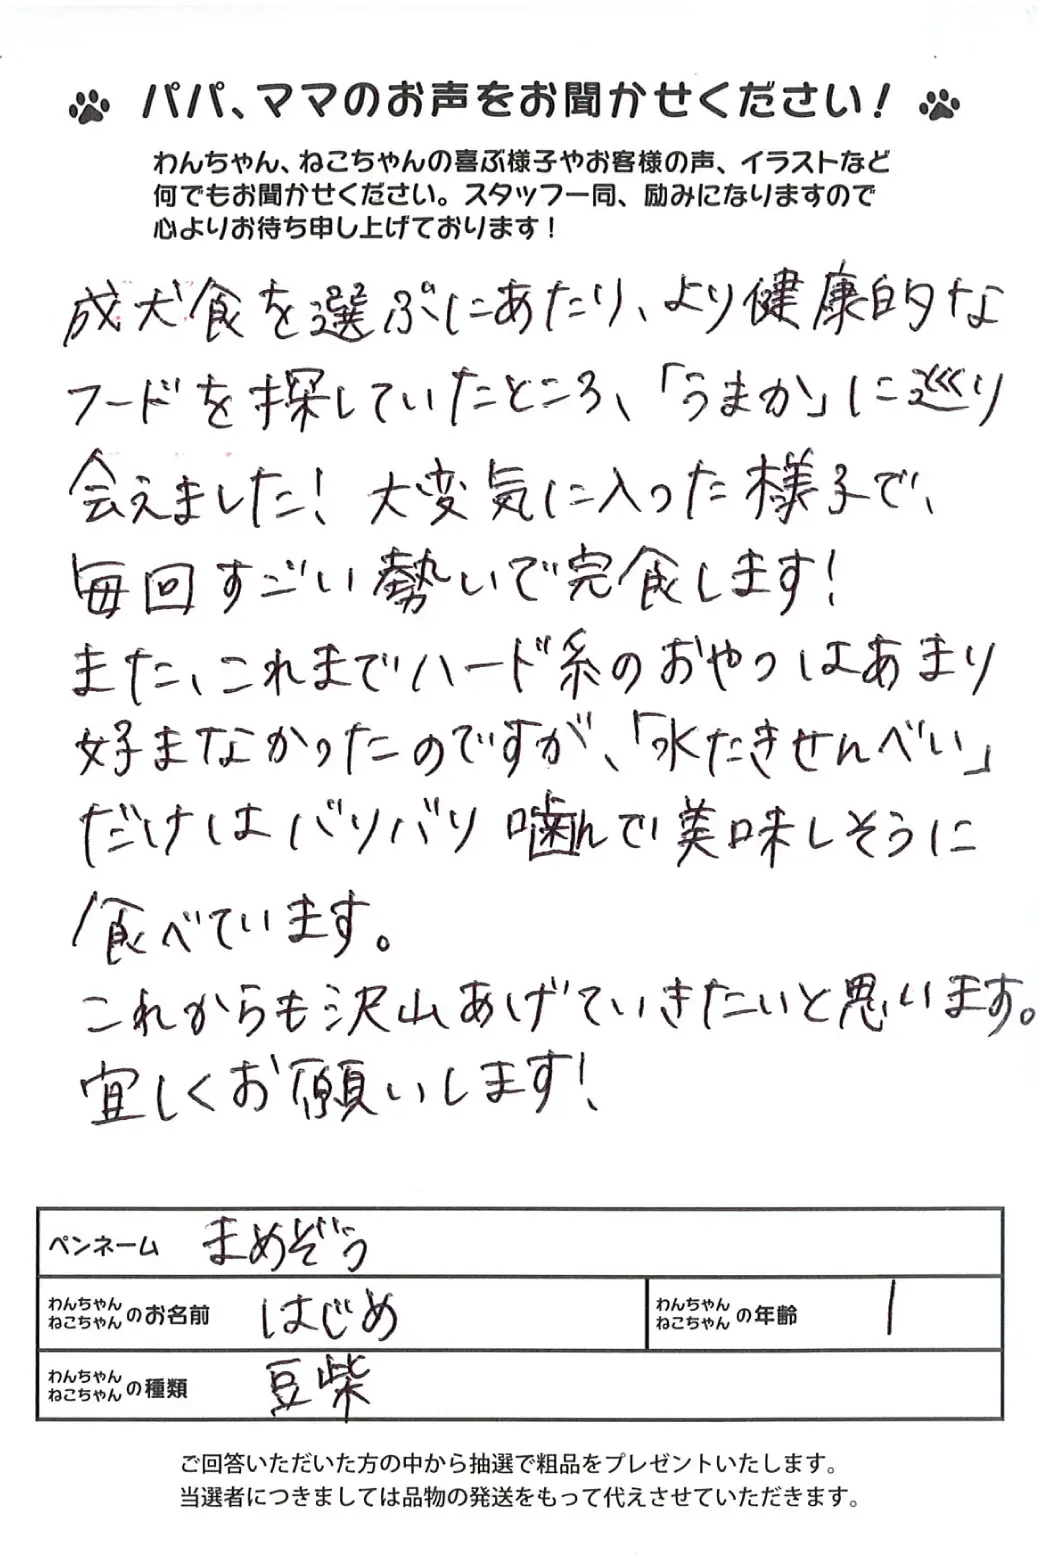 パパ、ママのお声をお聞かせください！
わんちゃん、ねこちゃんの喜ぶ様子やお客様の声、イラストなど
何でもお聞かせください。スタッフ一同、励みになりますので
心よりお待ち申し上げております！
成犬食を選ぶにあたり、より健康的な
フードを探していたところ、「うまか」に巡り
会えました！大変気に入った様子で、
毎回すごい勢いで完食します！
また、これまでハード系のおやつはあまり
好まなかったのですが、「水たきせんべい」
だけはバリバリ噛んで美味しそうに
食べています。
これからも沢山あげていきたいと思います。
宜しくお願いします！
ペンネーム まめぞう
わんちゃん ねこちゃん のお名前 はじめ わんちゃん ねこちゃん の年齢 1
わんちゃん ねこちゃん の種類 豆柴
ご回答いただいた方の中から抽選で粗品をプレゼントいたします。
当選者につきましては品物の発送をもって代えさせていただきます。